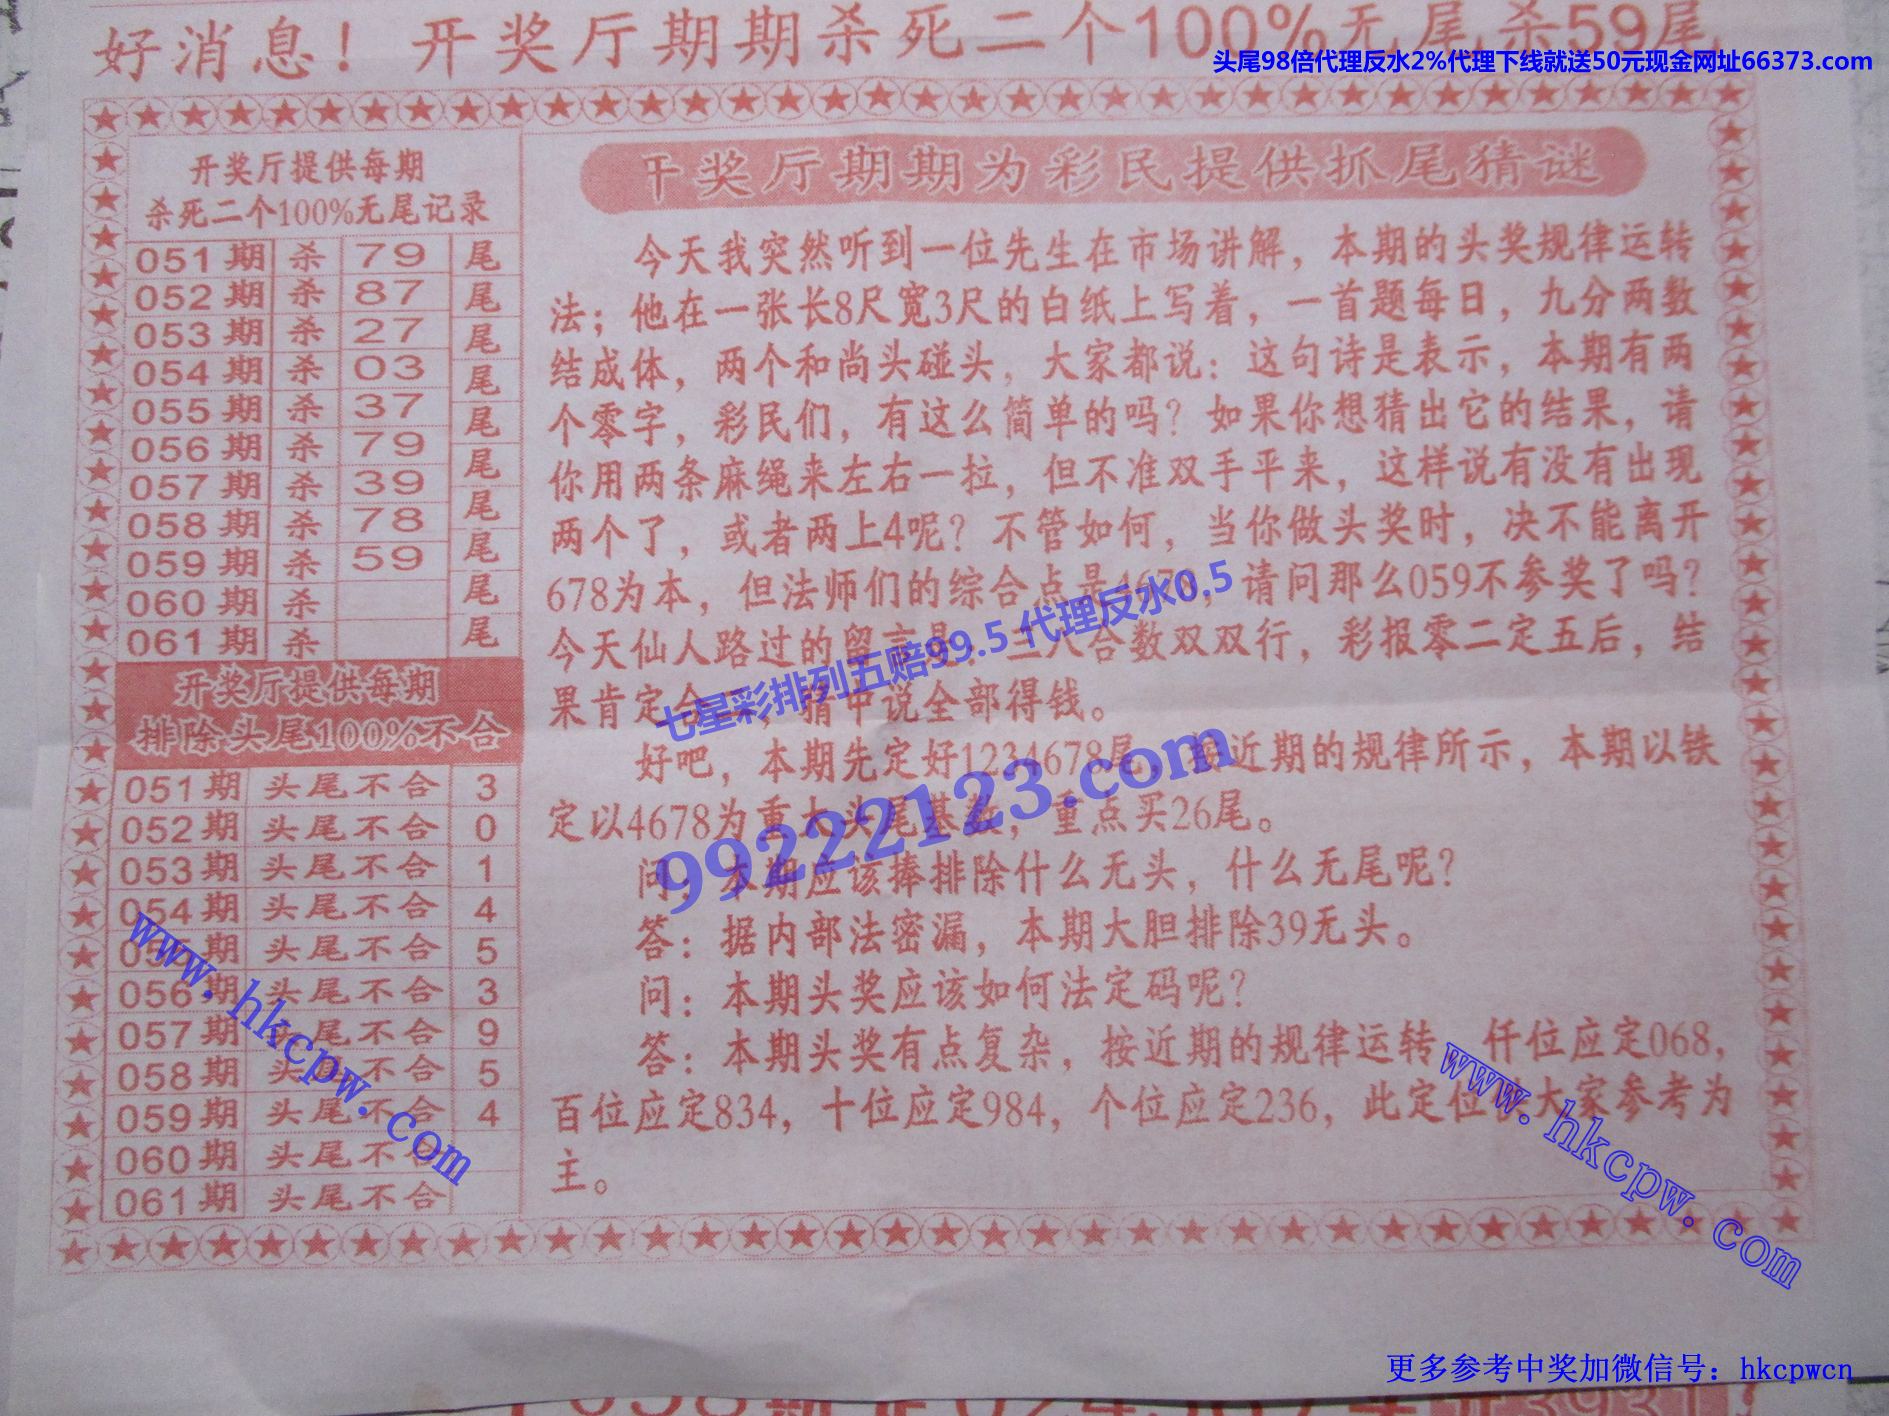 好消息！开奖厅期期杀死二个100%无尾杀59尾
头尾98倍代理反水2%代理下线就送50元现金网址66373.com
开奖厅提供每期
杀死二个100%无尾记录
051期 杀 79 尾
052期 杀 87 尾
053期 杀 27 尾
054期 杀 03 尾
055期 杀 37 尾
056期 杀 79 尾
057期 杀 39 尾
058期 杀 78 尾
059期 杀 59 尾
060期 杀 尾
061期 杀
开奖厅提供每期
排除头尾100%不合
051期 头尾不合 3
052期 头尾不合 0
053期 头尾不合 1
054期 头尾不合 4
055期 头尾不合 5
056期 头尾不合 3
057期 头尾不合 9
058期 头尾不合 5
059期 头尾不合 4
060期 头尾不合
061期 头尾不合
开奖厅期期为彩民提供抓尾猜谜
今天我突然听到一位先生在市场讲解，本期的头奖规律运转
法；他在一张长8尺宽3尺的白纸上写着，一首题每日，九分两数
结成体，两个和尚头碰头，大家都说：这句诗是表示，本期有两
个零字，彩民们，有这么简单的吗？如果你想猜出它的结果，请
你用两条麻绳来左右一拉，但不准双手平来，这样说有没有出现
两个了，或者两上4呢？不管如何，当你做头奖时，决不能离开
678为本，但法师们的综合点是4678，请问那么059不参奖了吗？
今天仙人路过的留言是：三人合数双双行，彩报零二定五后，结
果肯定合，猜中说全部得钱。
好吧，本期先定好1234678尾，按近期的规律所示，本期以铁
定以4678为重大头尾基数，重点买26尾。
问：本期应该捧排除什么无头，什么无尾呢？
答：据内部法密漏，本期大胆排除39无头。
问：本期头奖应该如何法定码呢？
答：本期头奖有点复杂，按近期的规律运转，仟位应定068，
百位应定834，十位应定984，个位应定236，此定位大家参考为
主。
七星彩排列五赔99.5 代理反水0.5
99222123.com
www.hkcpw.com
www.hkcpw.com
更多参考中奖加微信号：hkcpwcn